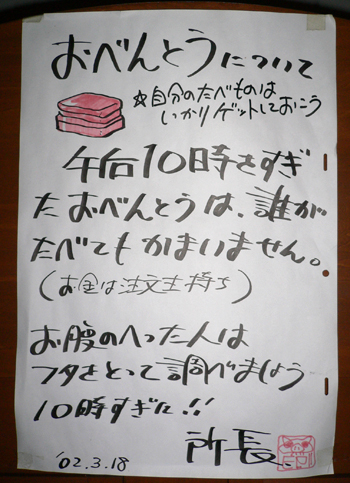 おべんとうについて
☆自分のたべものは
しっかりゲットしておこう
午后10時をすぎ
たおべんとうは、誰が
たべてもかまいません。
(お金は注文主持ち)
お腹のへった人は
フタをとって調べましょう
10時すぎに!!
所長、
'02.3.18